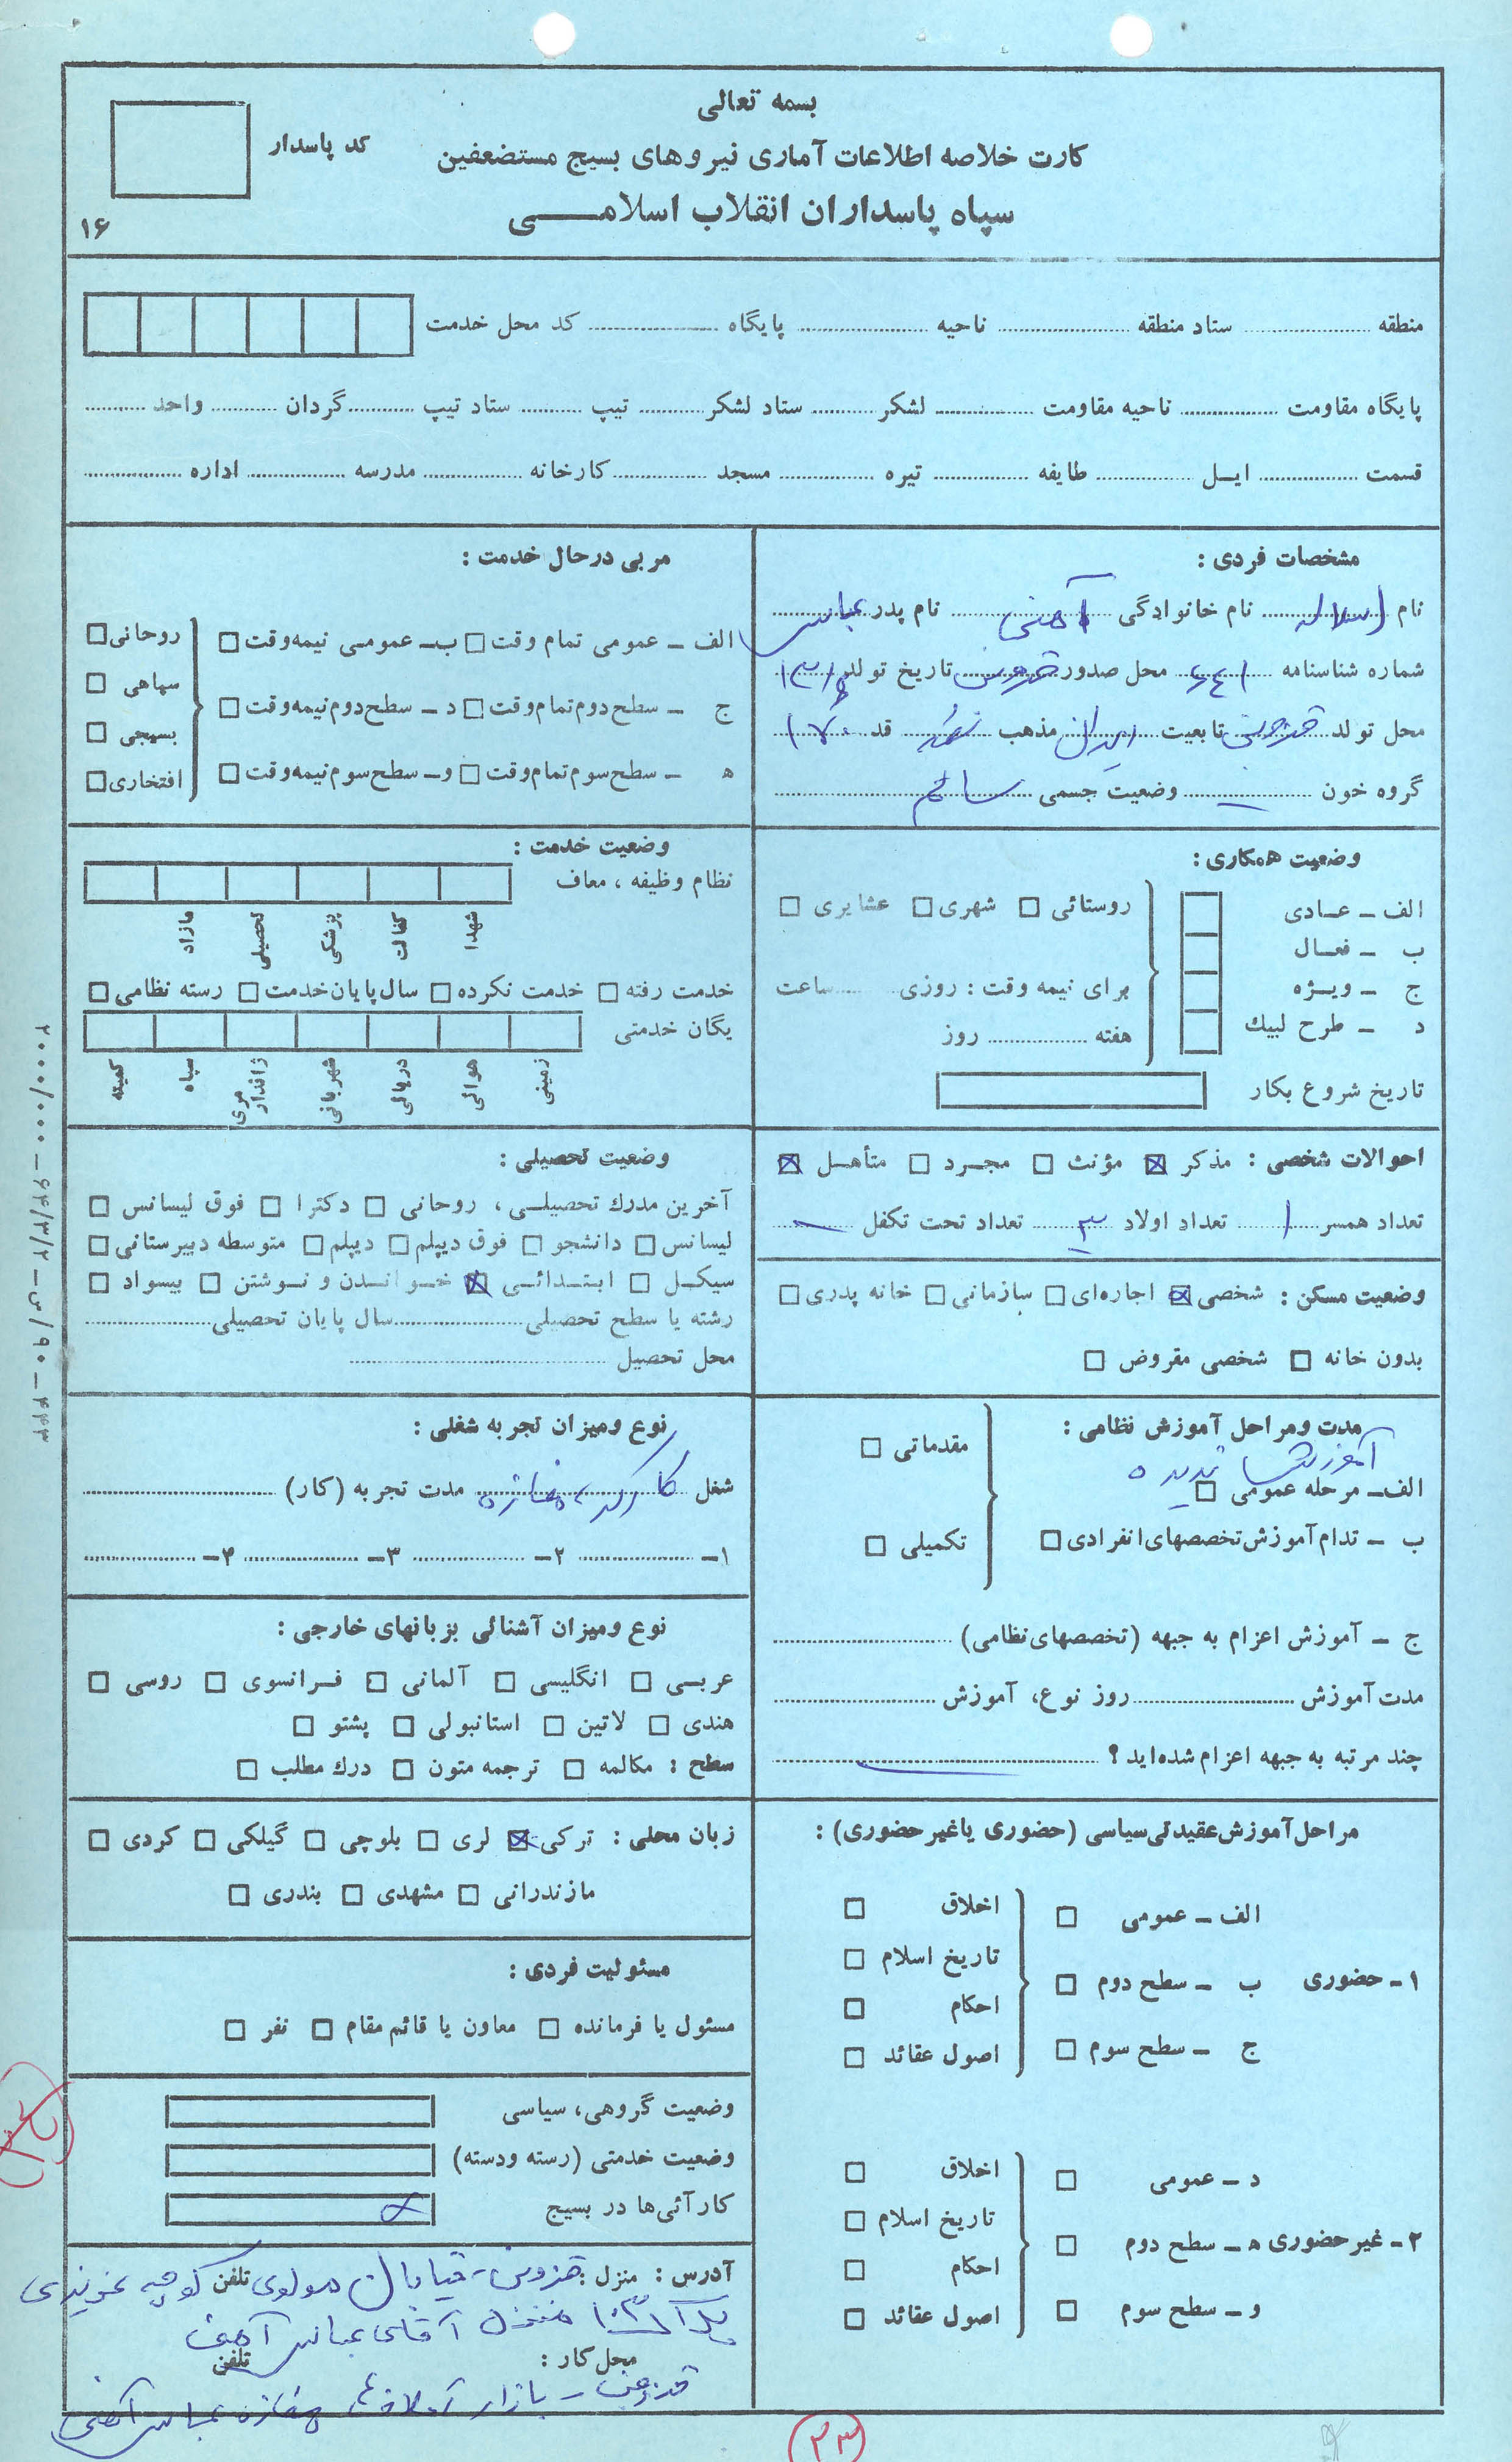 بسمه تعالی
کارت خلاصه اطلاعات آماری نیروهای بسیج مستضعفین
سپاه پاسداران انقلاب اسلامی
کد پاسدار
۱۶
منطقه ستاد منطقه ناحیه پایگاه کد محل خدمت
پایگاه مقاومت ناحیه مقاومت لشکر ستاد لشکر تیپ ستاد تیپ گردان واحد
قسمت ایل طایفه تیره مسجد کارخانه مدرسه اداره
مشخصات فردی :
نام نام خانوادگی آهنی نام پدر عباس
شماره شناسنامه ۶۴۱ محل صدور قزوین تاریخ تولد
محل تولد قزوین تابعیت ایران مذهب شیعه قد ۱۷۰
گروه خون — وضعیت جسمی سالم
مربی درحال خدمت :
الف - عمومی تمام وقت □ ب - عمومی نیمه وقت □
ج - سطح دوم تمام وقت □ د - سطح دوم نیمه وقت □
ه - سطح سوم تمام وقت □ و - سطح سوم نیمه وقت □
روحانی □
سپاهی □
بسیجی □
افتخاری □
وضعیت همکاری :
الف - عادی
ب - فعال
ج - ویژه
د - طرح لبیک
روستائی □ شهری □ عشایری □
برای نیمه وقت : روزی ساعت
هفته روز
تاریخ شروع بکار
وضعیت خدمت :
نظام وظیفه ، معاف
شهدا کفالت پزشکی تحصیلی مازاد
خدمت رفته □ خدمت نکرده □ سال پایان خدمت □ رسته نظامی □
یگان خدمتی
زمینی هوائی دریائی شهربانی ژاندارمری سپاه کمیته
احوالات شخصی : مذکر ☒ مؤنث □ مجرد □ متأهل ☒
تعداد همسر ۱ تعداد اولاد ۳ تعداد تحت تکفل —
وضعیت مسکن : شخصی ☒ اجاره‌ای □ سازمانی □ خانه پدری □
بدون خانه □ شخصی مقروض □
وضعیت تحصیلی :
آخرین مدرک تحصیلی ، روحانی □ دکترا □ فوق لیسانس □
لیسانس □ دانشجو □ فوق دیپلم □ دیپلم □ متوسطه دبیرستانی □
سیکل □ ابتدائی ☒ خواندن و نوشتن □ بیسواد □
رشته یا سطح تحصیلی سال پایان تحصیلی
محل تحصیل
مدت ومراحل آموزش نظامی :
آموزش ندیده
الف- مرحله عمومی □
ب - تدام آموزش تخصصهای انفرادی □
مقدماتی □
تکمیلی □
ج - آموزش اعزام به جبهه (تخصصهای نظامی)
مدت آموزش روز نوع، آموزش
چند مرتبه به جبهه اعزام شده‌اید ؟ —
نوع ومیزان تجربه شغلی :
شغل کارگر مغازه مدت تجربه (کار)
۱- ۲- ۳- ۴-
نوع ومیزان آشنائی بزبانهای خارجی :
عربی □ انگلیسی □ آلمانی □ فرانسوی □ روسی □
هندی □ لاتین □ استانبولی □ پشتو □
سطح : مکالمه □ ترجمه متون □ درک مطلب □
زبان محلی : ترکی ☒ لری □ بلوچی □ گیلکی □ کردی □
مازندرانی □ مشهدی □ بندری □
مراحل آموزش عقیدتی سیاسی (حضوری یا غیر حضوری) :
۱- حضوری
الف - عمومی □
ب - سطح دوم □
ج - سطح سوم □
اخلاق □
تاریخ اسلام □
احکام □
اصول عقائد □
۲- غیر حضوری
د - عمومی □
ه - سطح دوم □
و - سطح سوم □
اخلاق □
تاریخ اسلام □
احکام □
اصول عقائد □
مسئولیت فردی :
مسئول یا فرمانده □ معاون یا قائم مقام □ نفر □
وضعیت گروهی، سیاسی
وضعیت خدمتی (رسته ودسته)
کارآئی‌ها در بسیج
آدرس : منزل : قزوین - خیابان مولوی تلفن کوچه
پلاک منزل آقای عباس آهنی
محل کار : تلفن
قزوین - بازار مغازه عباس آهنی
۳۳